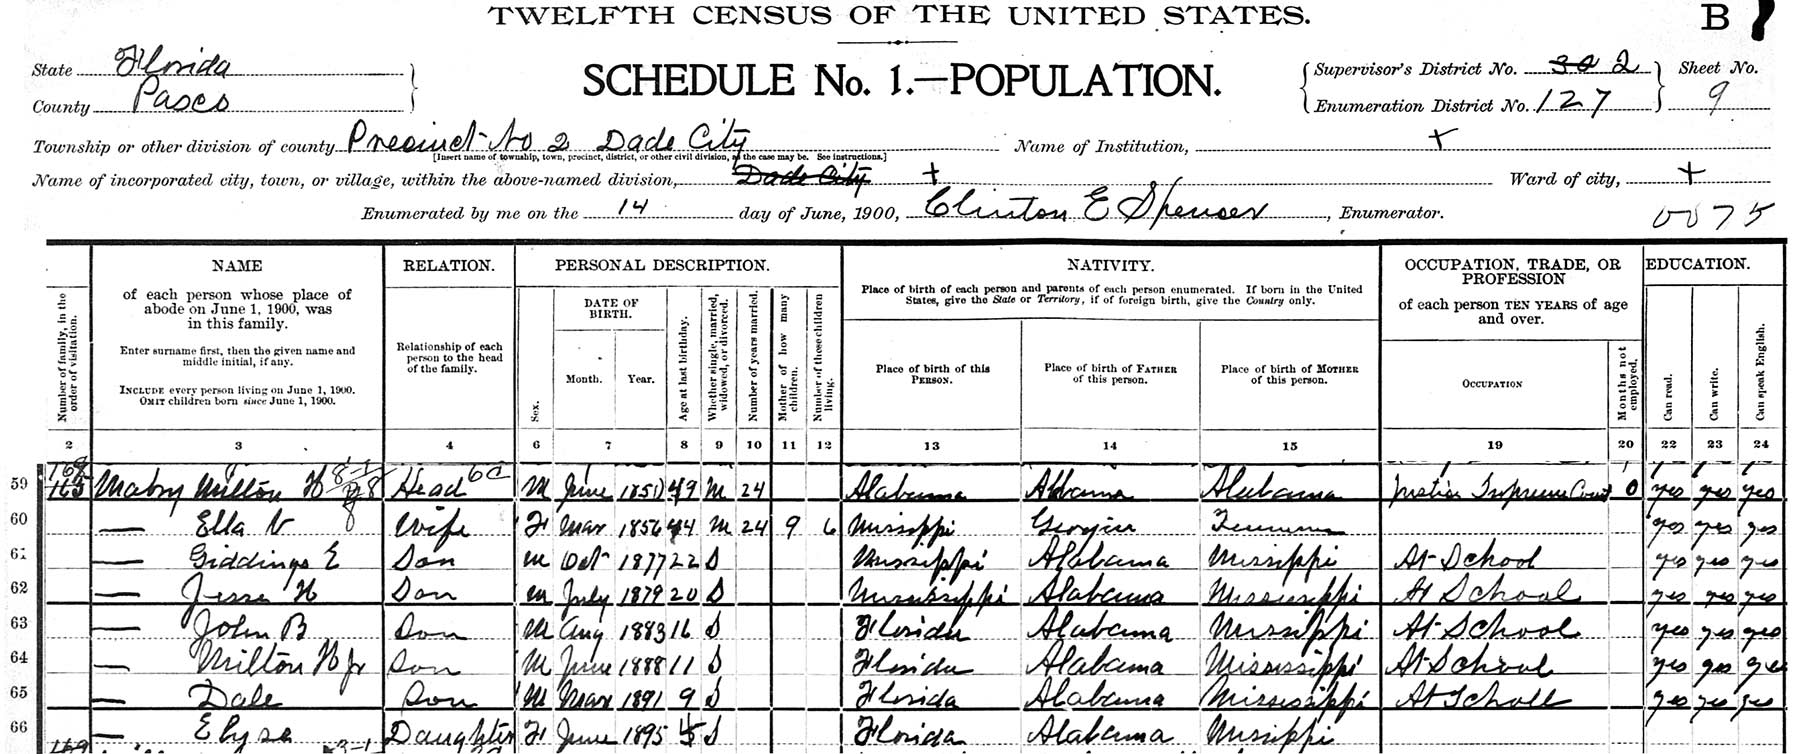 TWELFTH CENSUS OF THE UNITED STATES.
B
SCHEDULE No. 1.—POPULATION.
State Florida
County Pasco
Supervisor's District No. 302 2
Enumeration District No. 127
Sheet No.
9
Township or other division of county Precinct No 2 Dade City
[Insert name of township, town, precinct, district, or other civil division, as the case may be. See instructions.]
Name of Institution, +
Name of incorporated city, town, or village, within the above-named division, Dade City +
Ward of city, +
Enumerated by me on the 14 day of June, 1900, Clinton E Spenser, Enumerator.
0075
Number of family, in the order of visitation.
NAME
of each person whose place of
abode on June 1, 1900, was
in this family.
Enter surname first, then the given name and
middle initial, if any.
INCLUDE every person living on June 1, 1900.
OMIT children born since June 1, 1900.
RELATION.
Relationship of each
person to the head
of the family.
PERSONAL DESCRIPTION.
Sex.
DATE OF
BIRTH.
Month. Year.
Age at last birthday.
Whether single, married, widowed, or divorced.
Number of years married.
Mother of how many children.
Number of these children living.
NATIVITY.
Place of birth of each person and parents of each person enumerated. If born in the United
States, give the State or Territory; if of foreign birth, give the Country only.
Place of birth of this
PERSON.
Place of birth of FATHER
of this person.
Place of birth of MOTHER
of this person.
OCCUPATION, TRADE, OR
PROFESSION
of each person TEN YEARS of age
and over.
OCCUPATION
Months not employed.
EDUCATION.
Can read.
Can write.
Can speak English.
2 3 4 6 7 8 9 10 11 12 13 14 15 19 20 22 23 24
59 168 165 Mabry Milton H Head M June 1851 49 M 24 Alabama Alabama Alabama Justice Supreme Court 0 yes yes yes
60 — Ella V Wife F Mar 1856 44 M 24 9 6 Missippi Georgia yes yes yes
61 — Giddings E Son M Oct 1877 22 S Mississippi Alabama Missippi At School yes yes yes
62 — Jesse H Son M July 1879 20 S Mississippi Alabama Mississippi At School yes yes yes
63 — John B Son M Aug 1883 16 S Florida Alabama Mississippi At School yes yes yes
64 — Milton H Jr Son M June 1888 11 S Florida Alabama Mississippi At School yes yes yes
65 — Dale Son M Mar 1891 9 S Florida Alabama Mississippi At School yes yes yes
66 — Elysa Daughter F June 1895 5 S Florida Alabama Missippi
169